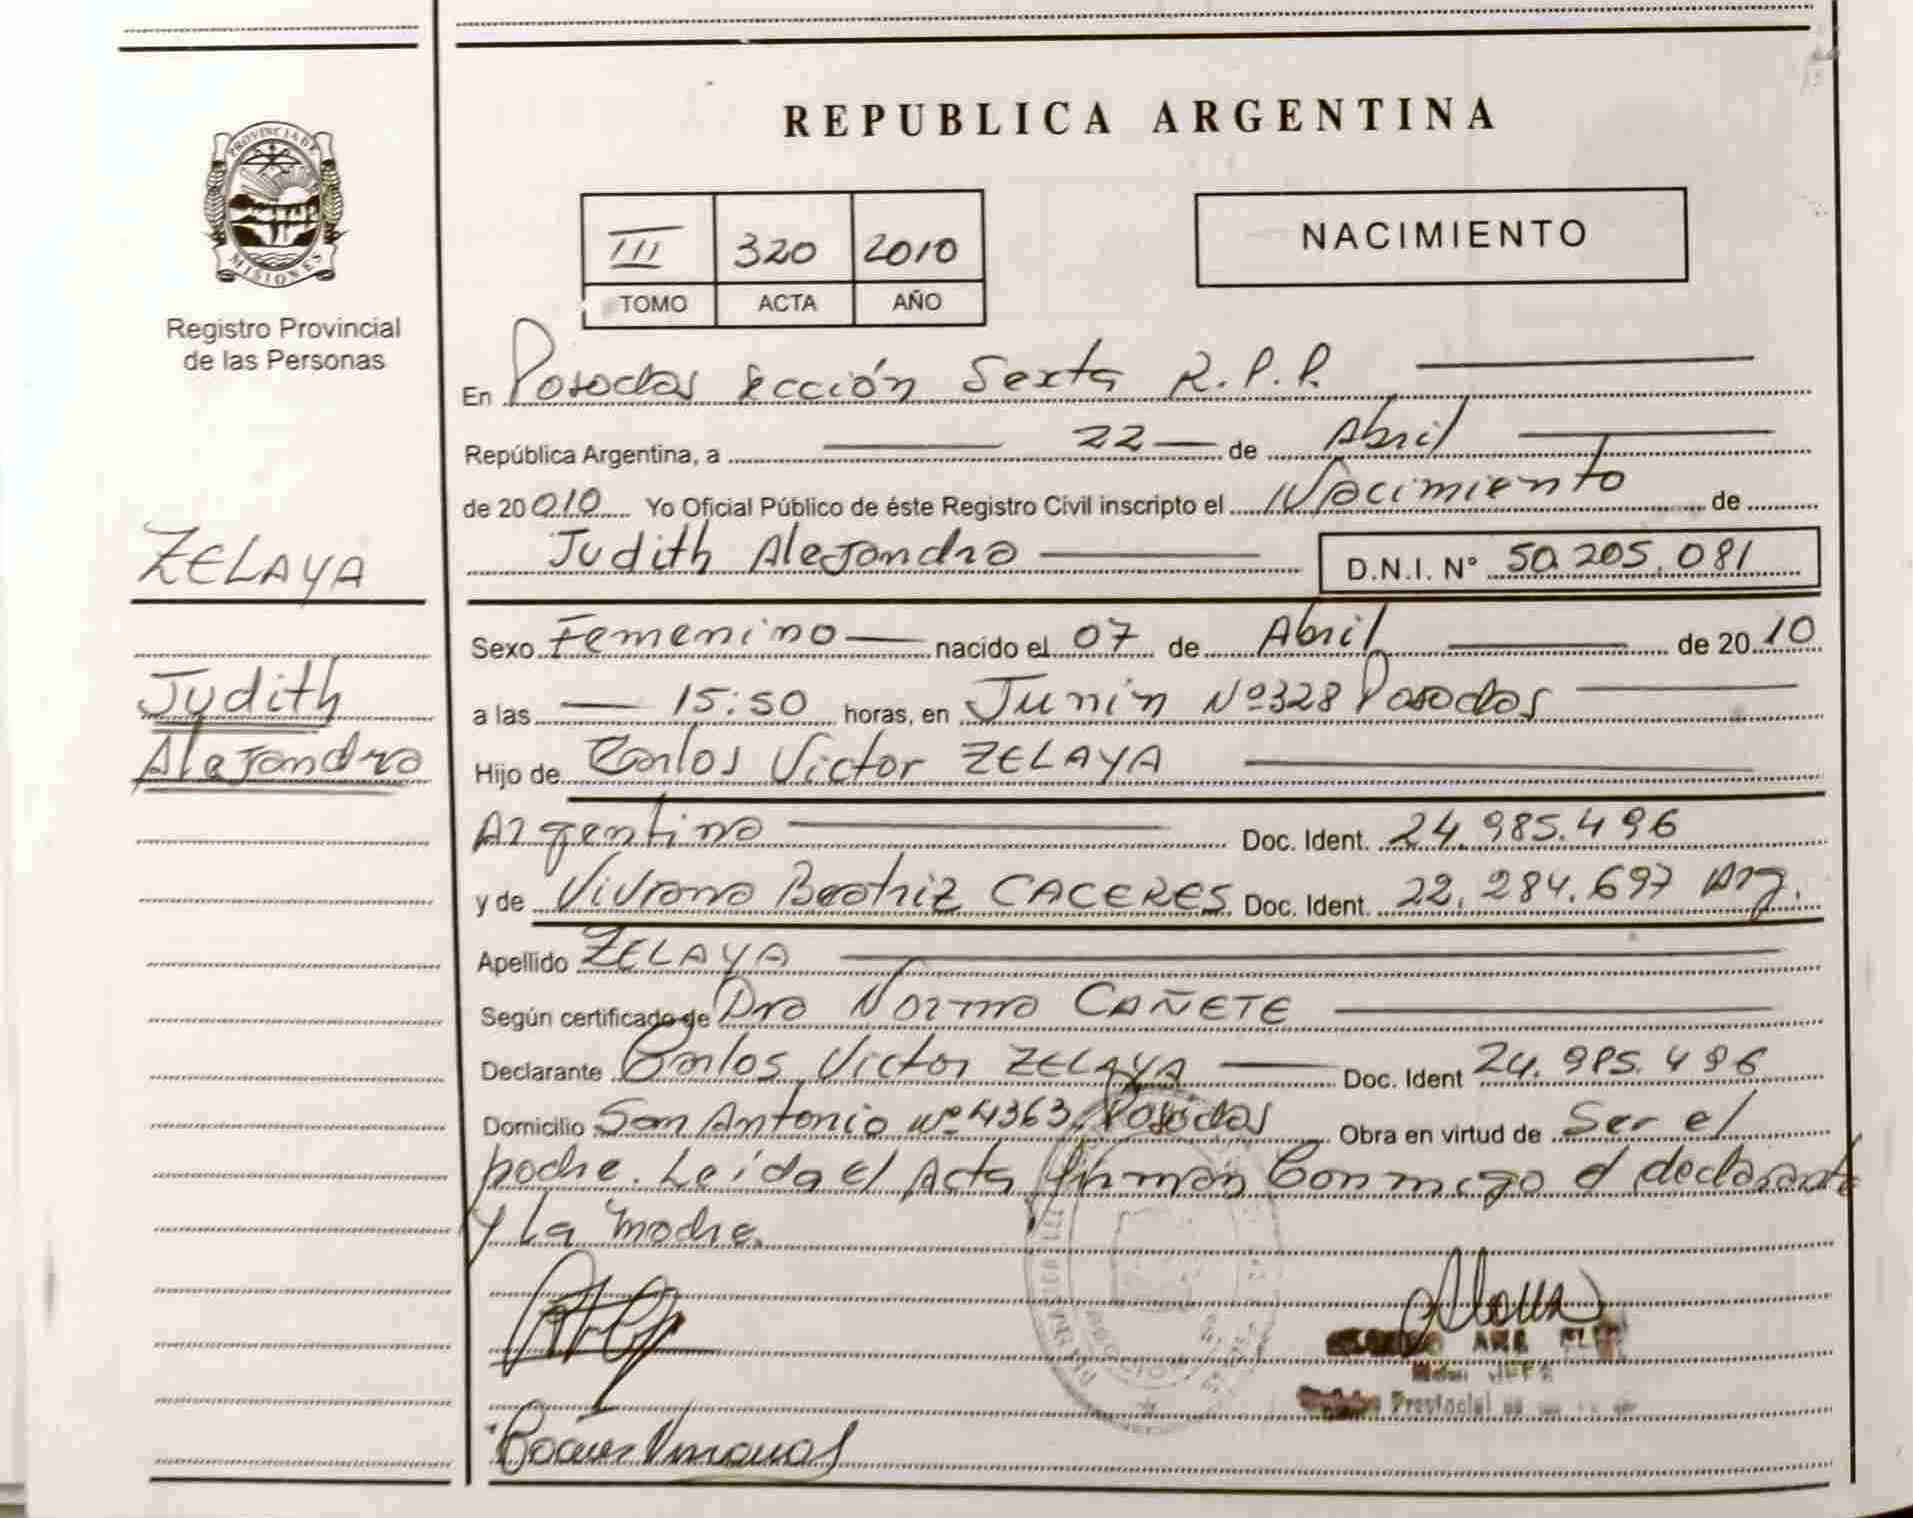 REPUBLICA ARGENTINA
PROVINCIA DE
MISIONES
Registro Provincial
de las Personas
III 320 2010
TOMO ACTA AÑO
NACIMIENTO
En Posadas Sección Sexta R.P.P.
República Argentina, a 22 de Abril
de 20 010 Yo Oficial Público de éste Registro Civil inscripto el Nacimiento de
Judith Alejandra D.N.I. N° 50.205.081
ZELAYA
Judith
Alejandra
Sexo Femenino nacido el 07 de Abril de 20 10
a las 15:50 horas, en Junin Nº 328 Posadas
Hijo de Carlos Victor ZELAYA
Argentino Doc. Ident. 24.985.496
y de Viviana Beatriz CACERES Doc. Ident. 22.284.697 Arg.
Apellido ZELAYA
Según certificado de Dra Norma CAÑETE
Declarante Carlos Victor ZELAYA Doc. Ident 24.985.496
Domicilio San Antonio Nº 4363 Posadas Obra en virtud de Ser el
padre. Leída el Acta firman Conmigo el declarante
y La madre.